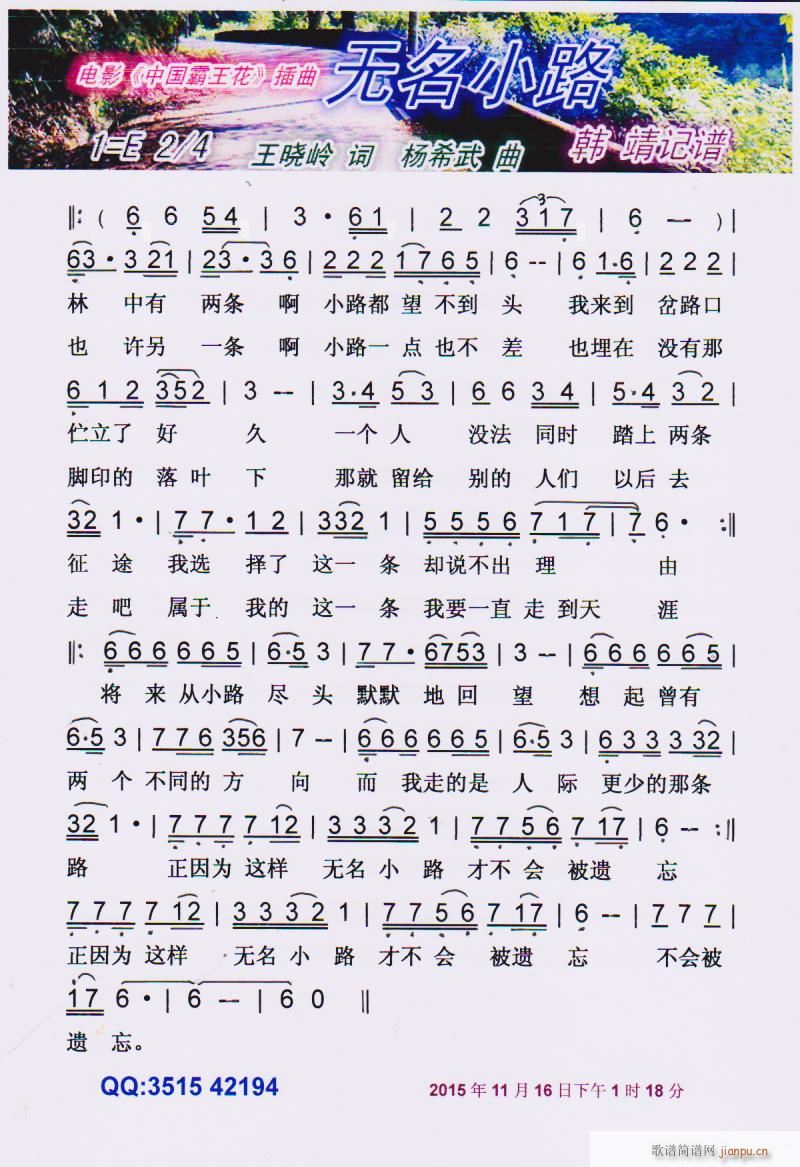 电影《中国霸王花》插曲 无名小路
1=E 2/4 王晓岭 词 杨希武 曲 韩 靖记谱
‖: ( 6 6 54 | 3 · 61 | 2 2 317 | 6 — ) |
63 · 3 21 | 23 · 3 6 | 2 2 2 1 7 6 5 | 6 -- | 6 1·6 | 2 2 2
林 中有 两条 啊 小路都 望 不到 头 我来到 岔路口
也 许另 一条 啊 小路一 点 也不 差 也埋在 没有那
6 1 2 352 | 3 -- | 3·4 5 3 | 6 6 3 4 | 5·4 3 2 |
伫立了 好 久 一个 人 没法 同时 踏上 两条
脚印的 落 叶 下 那就 留给 别的 人们 以后 去
32 1 · | 7 7 · 1 2 | 332 1 | 5 5 5 6 7 1 7 | 7 6 · :‖
征 途 我选 择了 这一 条 却说不出 理 由
走 吧 属于 我的 这一 条 我要一直 走 到天 涯
‖: 6 6 6 6 6 5 | 6·5 3 | 7 7 · 6753 | 3 -- | 6 6 6 6 6 5 |
将 来 从小路 尽 头 默默 地 回 望 想 起 曾有
6·5 3 | 7 7 6 356 | 7 -- | 6 6 6 6 6 5 | 6·5 3 | 6 3 3 3 32 |
两 个 不同的 方 向 而 我走的是 人 际 更少的那条
32 1 · | 7 7 7 7 12 | 3 3 3 2 1 | 7 7 5 6 7 17 | 6 -- :‖
路 正因为 这样 无名 小 路 才不 会 被遗 忘
7 7 7 7 12 | 3 3 3 2 1 | 7 7 5 6 7 17 | 6 -- | 7 7 7 |
正因为 这样 无名 小 路 才不 会 被遗 忘 不会被
17 6 · | 6 -- | 6 0 ‖
遗 忘。
QQ:3515 42194 2015 年 11 月 16 日下午 1 时 18 分
歌谱简谱网 jianpu.cn